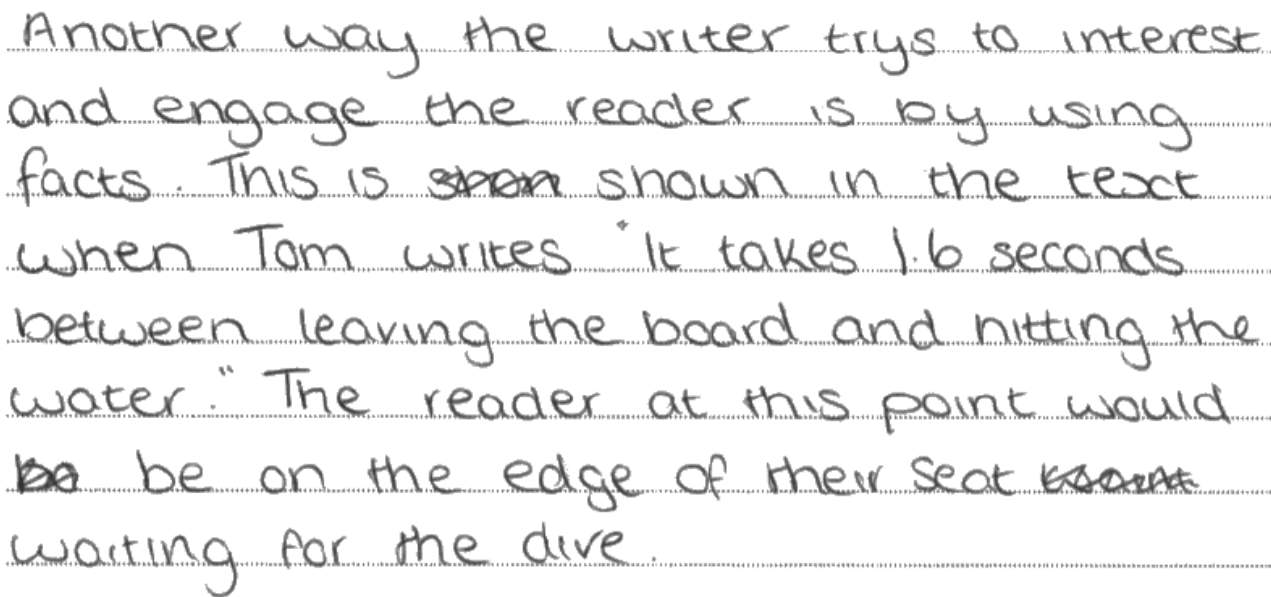 Another way the writer trys to interest
and engage the reader is by using
facts. This is shown in the text
when Tom writes "It takes 1.6 seconds
between leaving the board and hitting the
water." The reader at this point would
be on the edge of their seat
waiting for the dive.